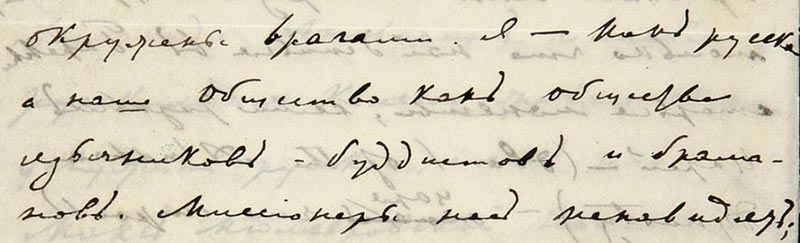 окружены врагами. Я — какъ русская
а наше Общество какъ общество
язычниковъ - буддистовъ и брами-
новъ. Миссіонеры насъ ненавидятъ;